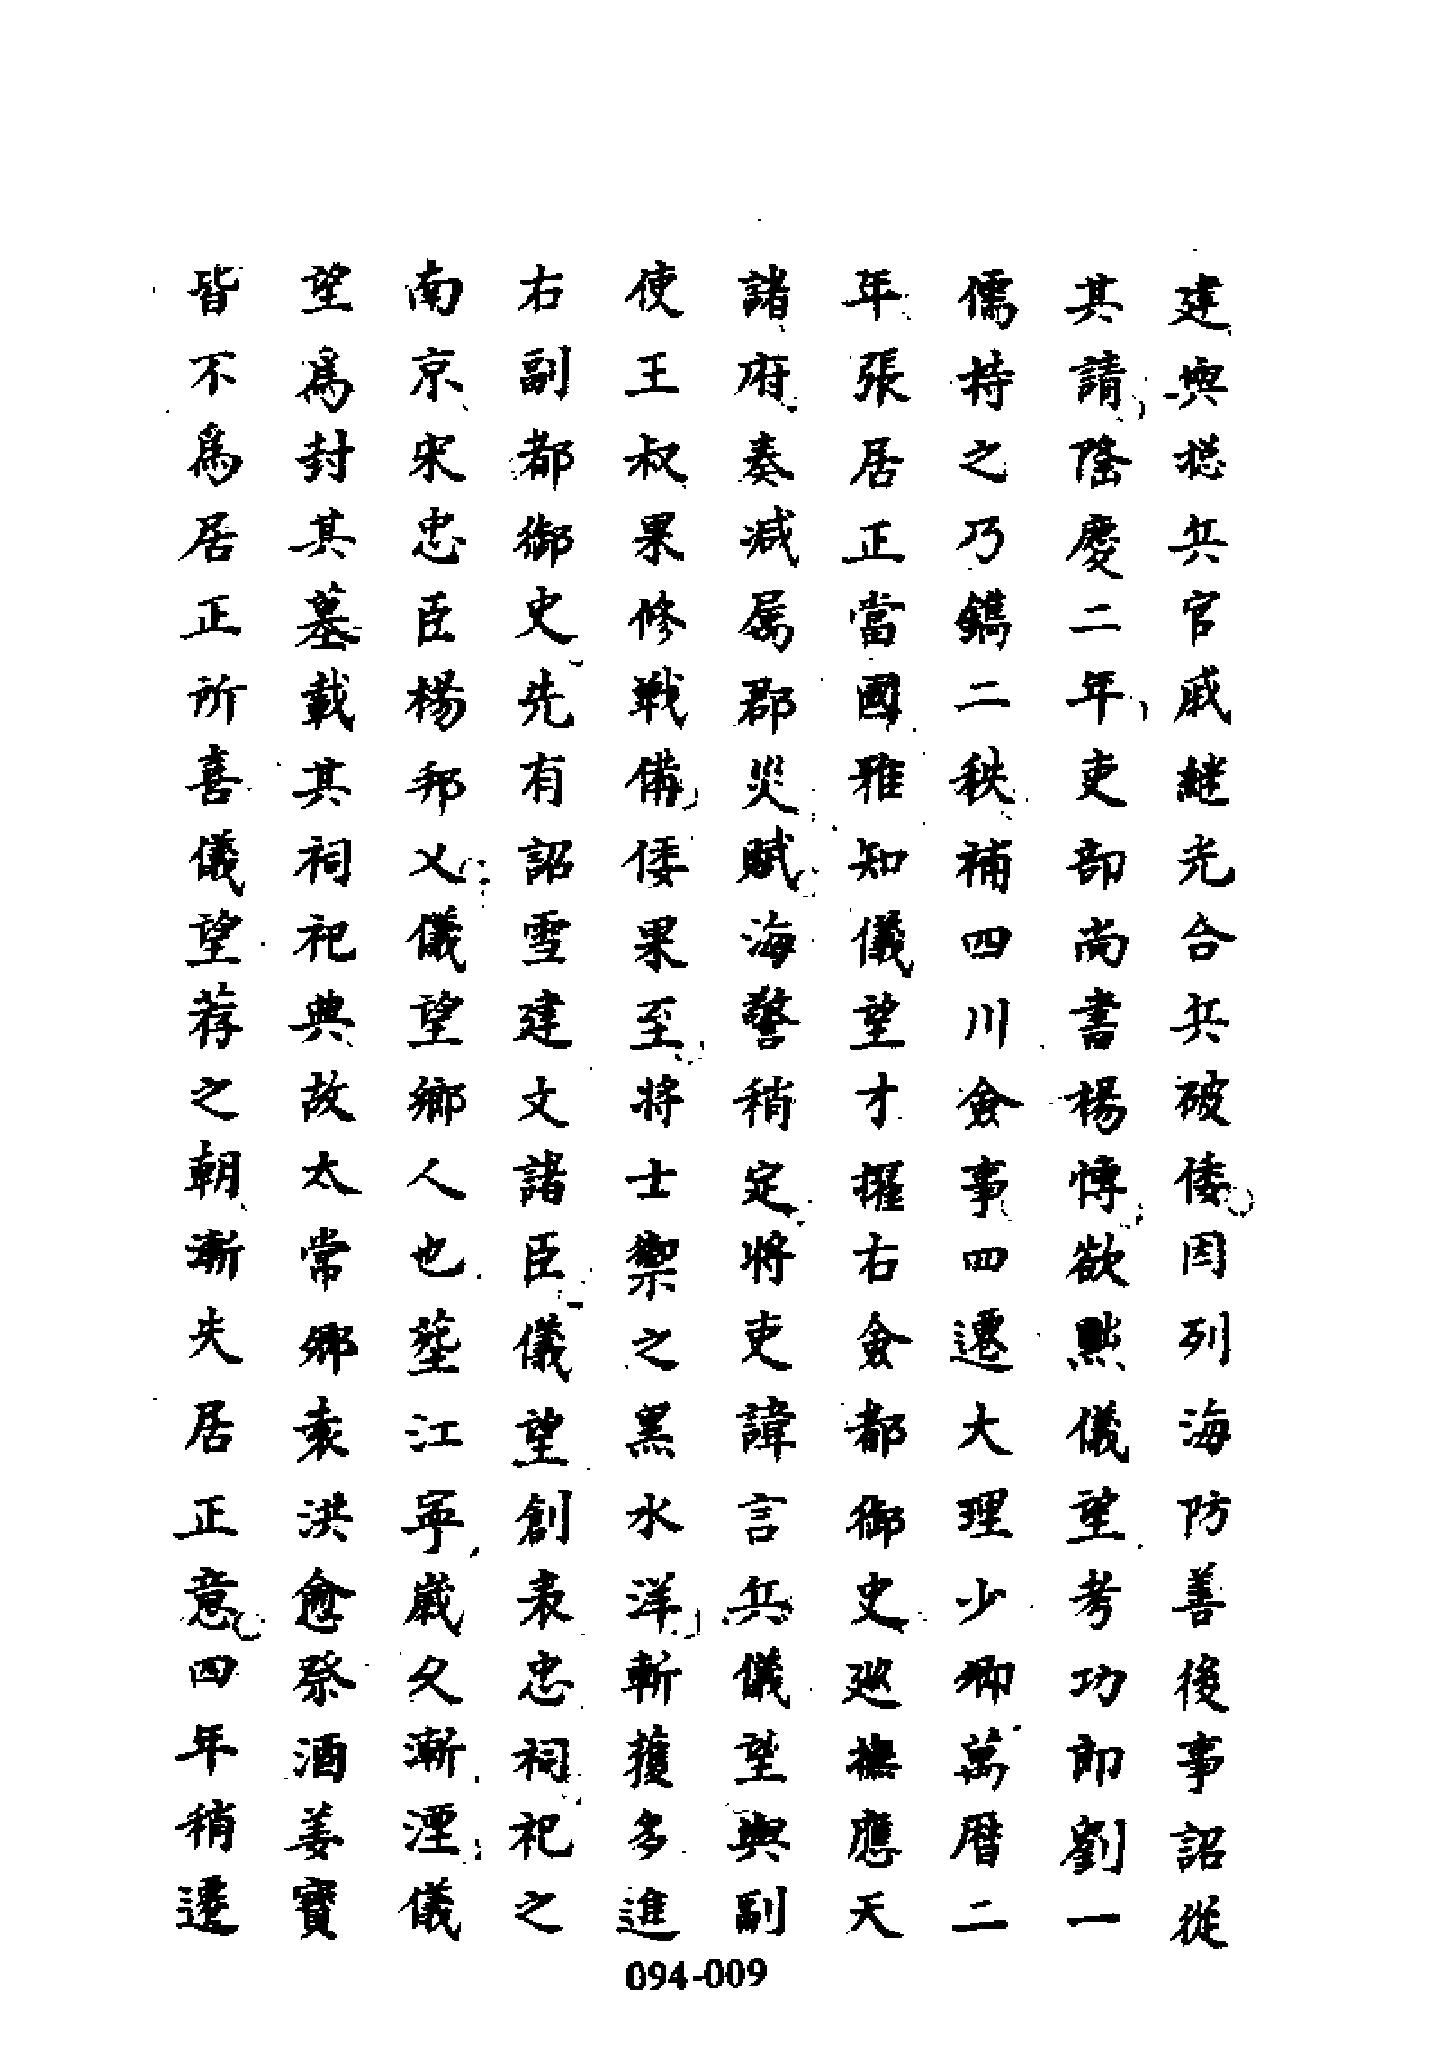 建與揔兵官戚継光合兵破倭因列海防善後事詔從
其請隆慶二年吏部尚書楊博欲黜儀望考功郎劉一
儒持之乃鐫二秩補四川僉事四遷大理少卿萬曆二
年張居正當國雅知儀望才擢右僉都御史廵撫應天
諸府奏减属郡災賦海警稍定將吏諱言兵儀望與副
使王叔果修戰備倭果至將士禦之黑水洋斬獲多進
右副都御史先有詔雪建文諸臣儀望創表忠祠祀之
南京宋忠臣楊邦乂儀望鄉人也塟江寧歲久漸湮儀
望為封其墓載其祠祀典故太常卿袁洪愈祭酒姜寶
皆不為居正所喜儀望荐之朝漸失居正意四年稍遷
094-009